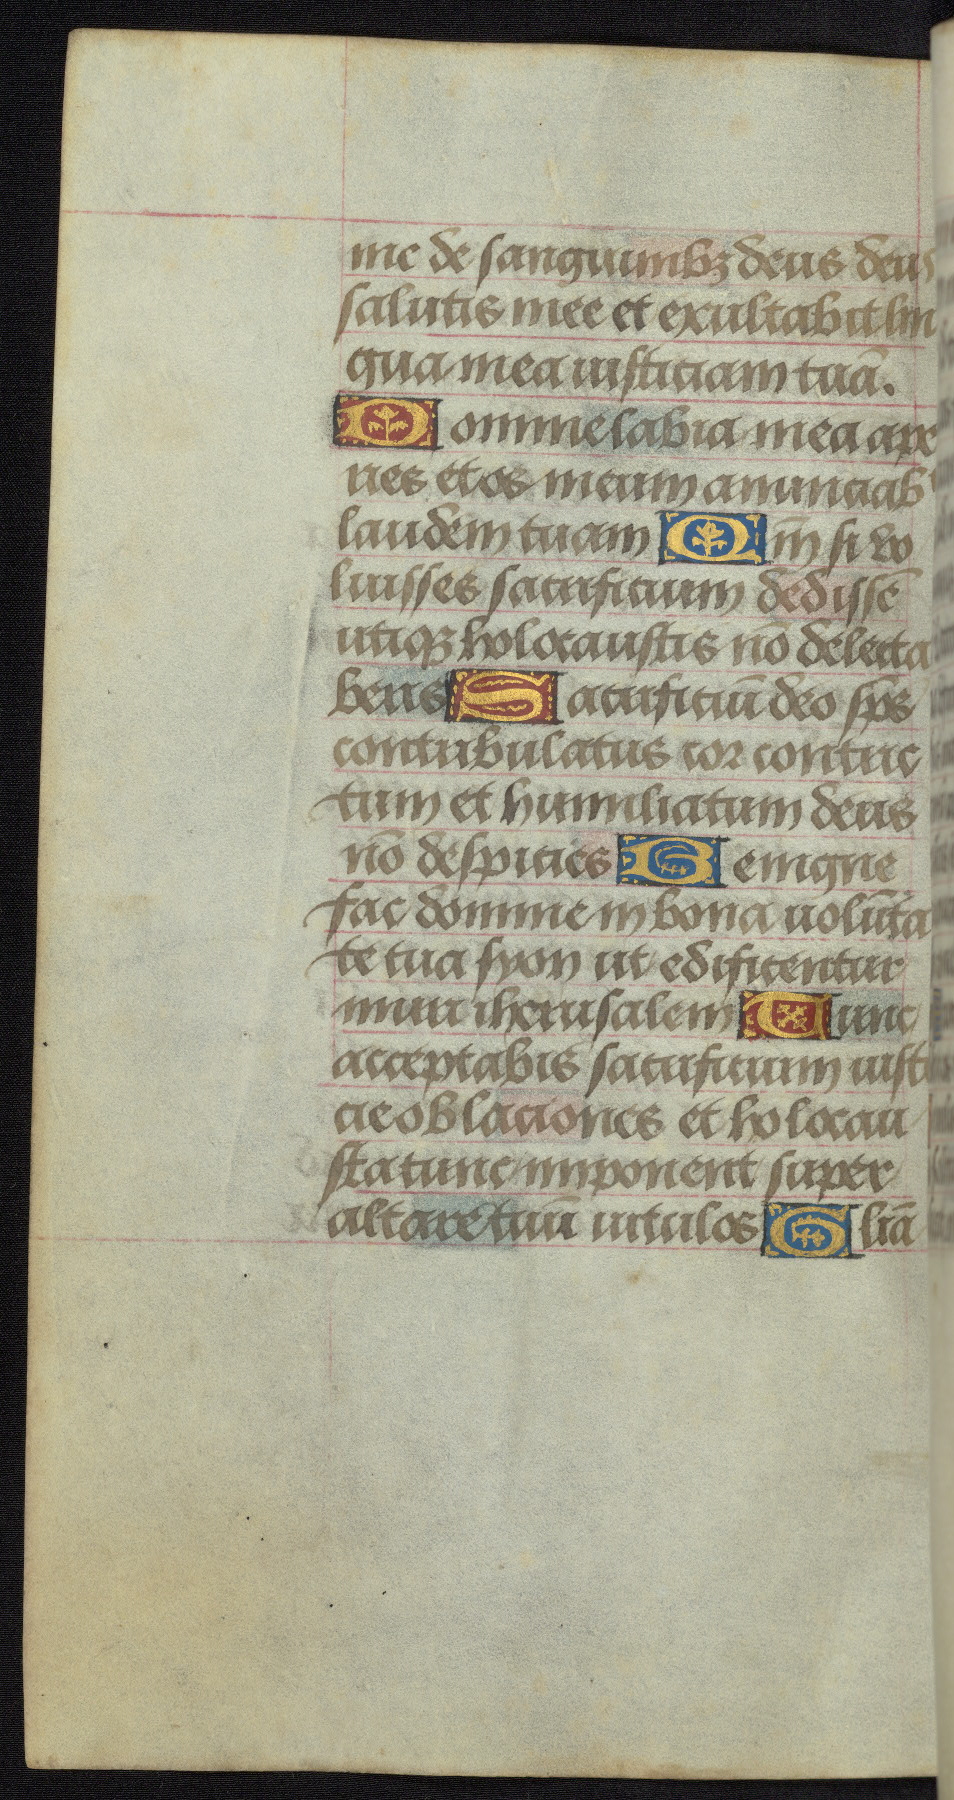 me de sanguinibꝫ deus deus
salutis mee et exultabit lin
gua mea iusticiam tuā.
Domine labia mea ape
ries et os meum anunciab
laudem tuam Qm̄ si vo
luisses sacrificium dedissē
utiqꝫ holocaustis nō delecta
beris Sacrificiū deo sp̄s
contribulatus cor contric
tum et humiliatum deus
nō despicies Benigne
fac domine in bona uolūta
te tua syon ut edificentur
muri iherusalem Tunc
acceptabis sacrificium iusti
cie oblaciones et holocau
sta tunc imponent super
altare tuū uitulos Gliā